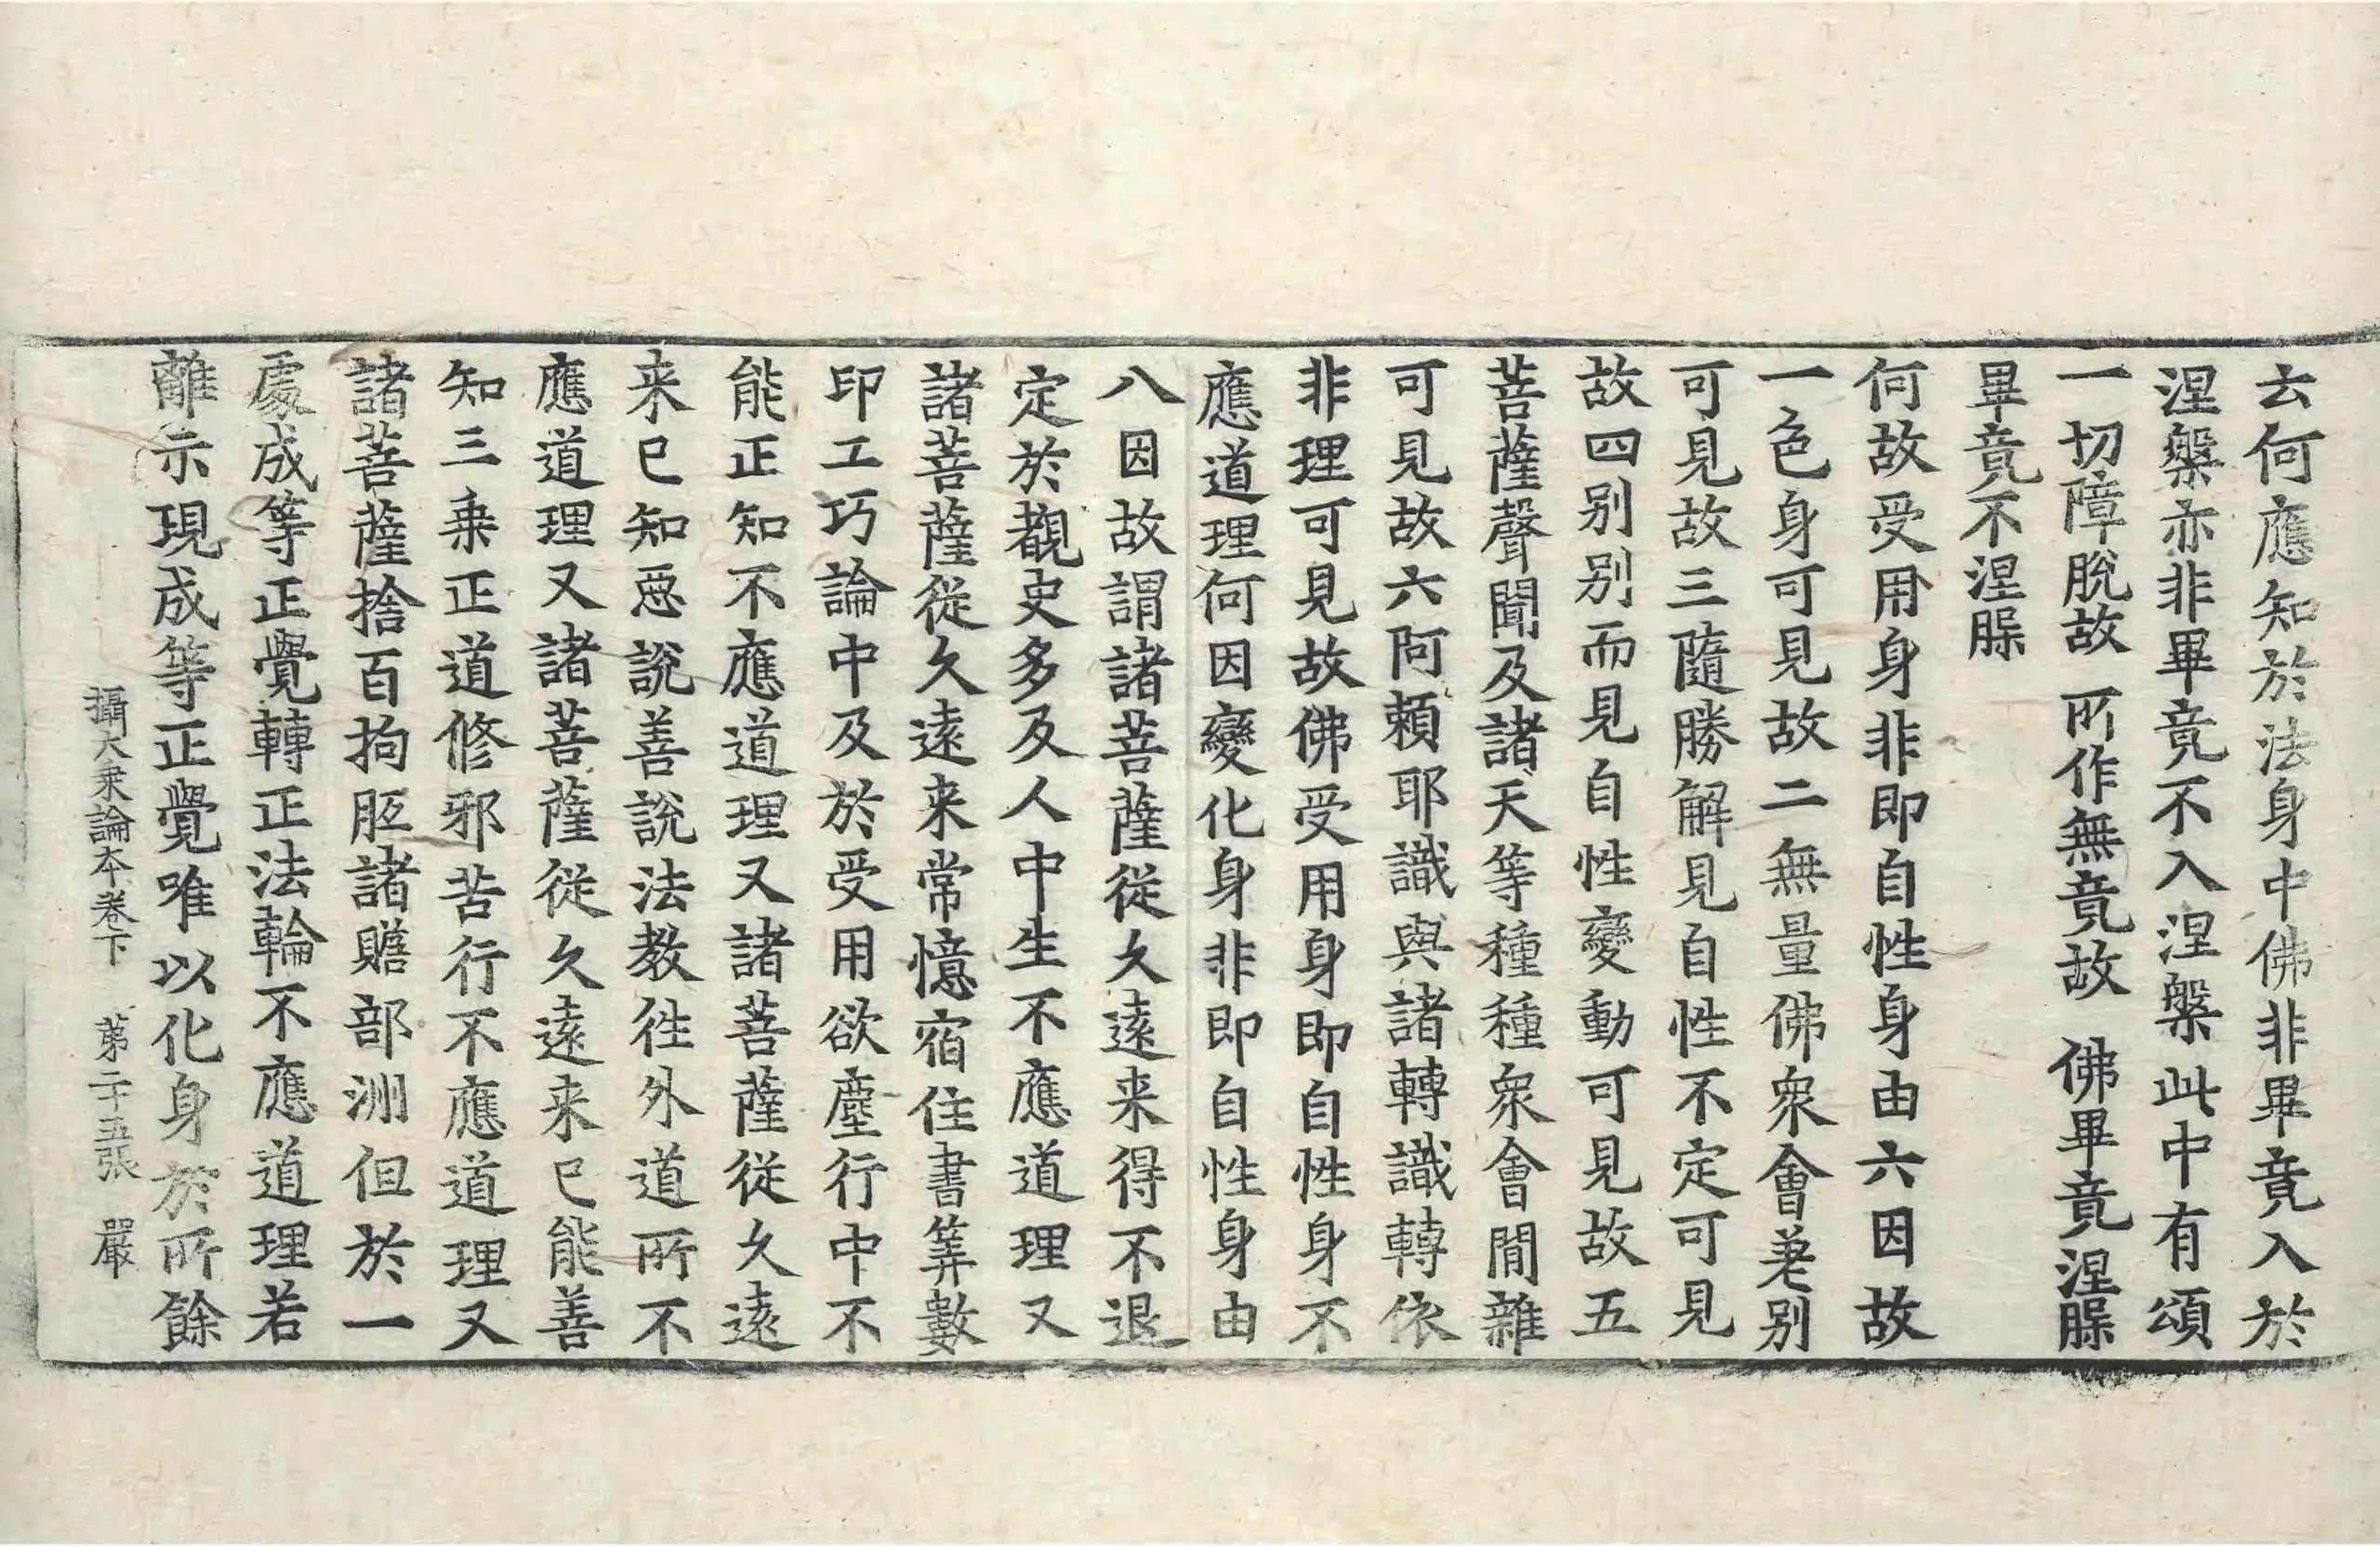 去何應知於法身中佛非畢竟入於
涅槃亦非畢竟不入涅槃此中有頌
一切障脫故　所作無竟故　佛畢竟涅槃
畢竟不涅槃
何故受用身非即自性身由六因故
一色身可見故二無量佛衆會差別
可見故三隨勝解見自性不定可見
故四別別而見自性變動可見故五
菩薩聲聞及諸天等種種衆會間雜
可見故六阿頼耶識與諸轉識轉依
非理可見故佛受用身即自性身不
應道理何因變化身非即自性身由
八因故謂諸菩薩從久遠来得不退
定於覩史多及人中生不應道理又
諸菩薩從久遠来常憶宿住書筭數
印工巧論中及於受用欲塵行中不
能正知不應道理又諸菩薩從久遠
来已知惡說善說法教徃外道所不
應道理又諸菩薩從久遠来已能善
知三乗正道修邪苦行不應道理又
諸菩薩捨百拘胝諸贍部洲但於一
處成等正覺轉正法輪不應道理若
離示現成等正覺唯以化身於所餘
攝大乗論本卷下　第二十五張　嚴